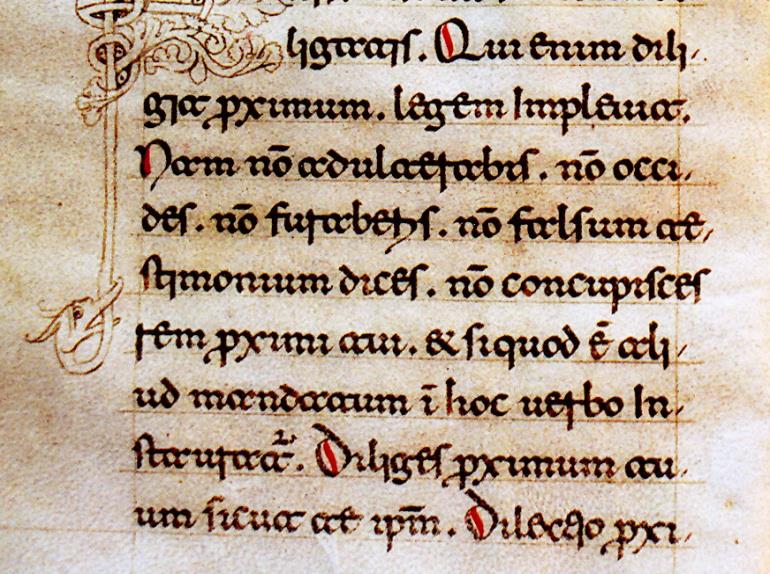 ligatis. Qui enim dili-
git ꝓximum. legem Impleuit.
Nam nō adulterabis. nō occi-
des. nō furaberis. nō falsum te-
stimonium dices. nō concupisces
rem ꝓximi tui. & siquod ē ali-
ud mandatum ī hoc uerbo In-
stauratᷣ. Diliges ꝓximum tu-
um sicut te ipm̄. Dilectio ꝓxi-